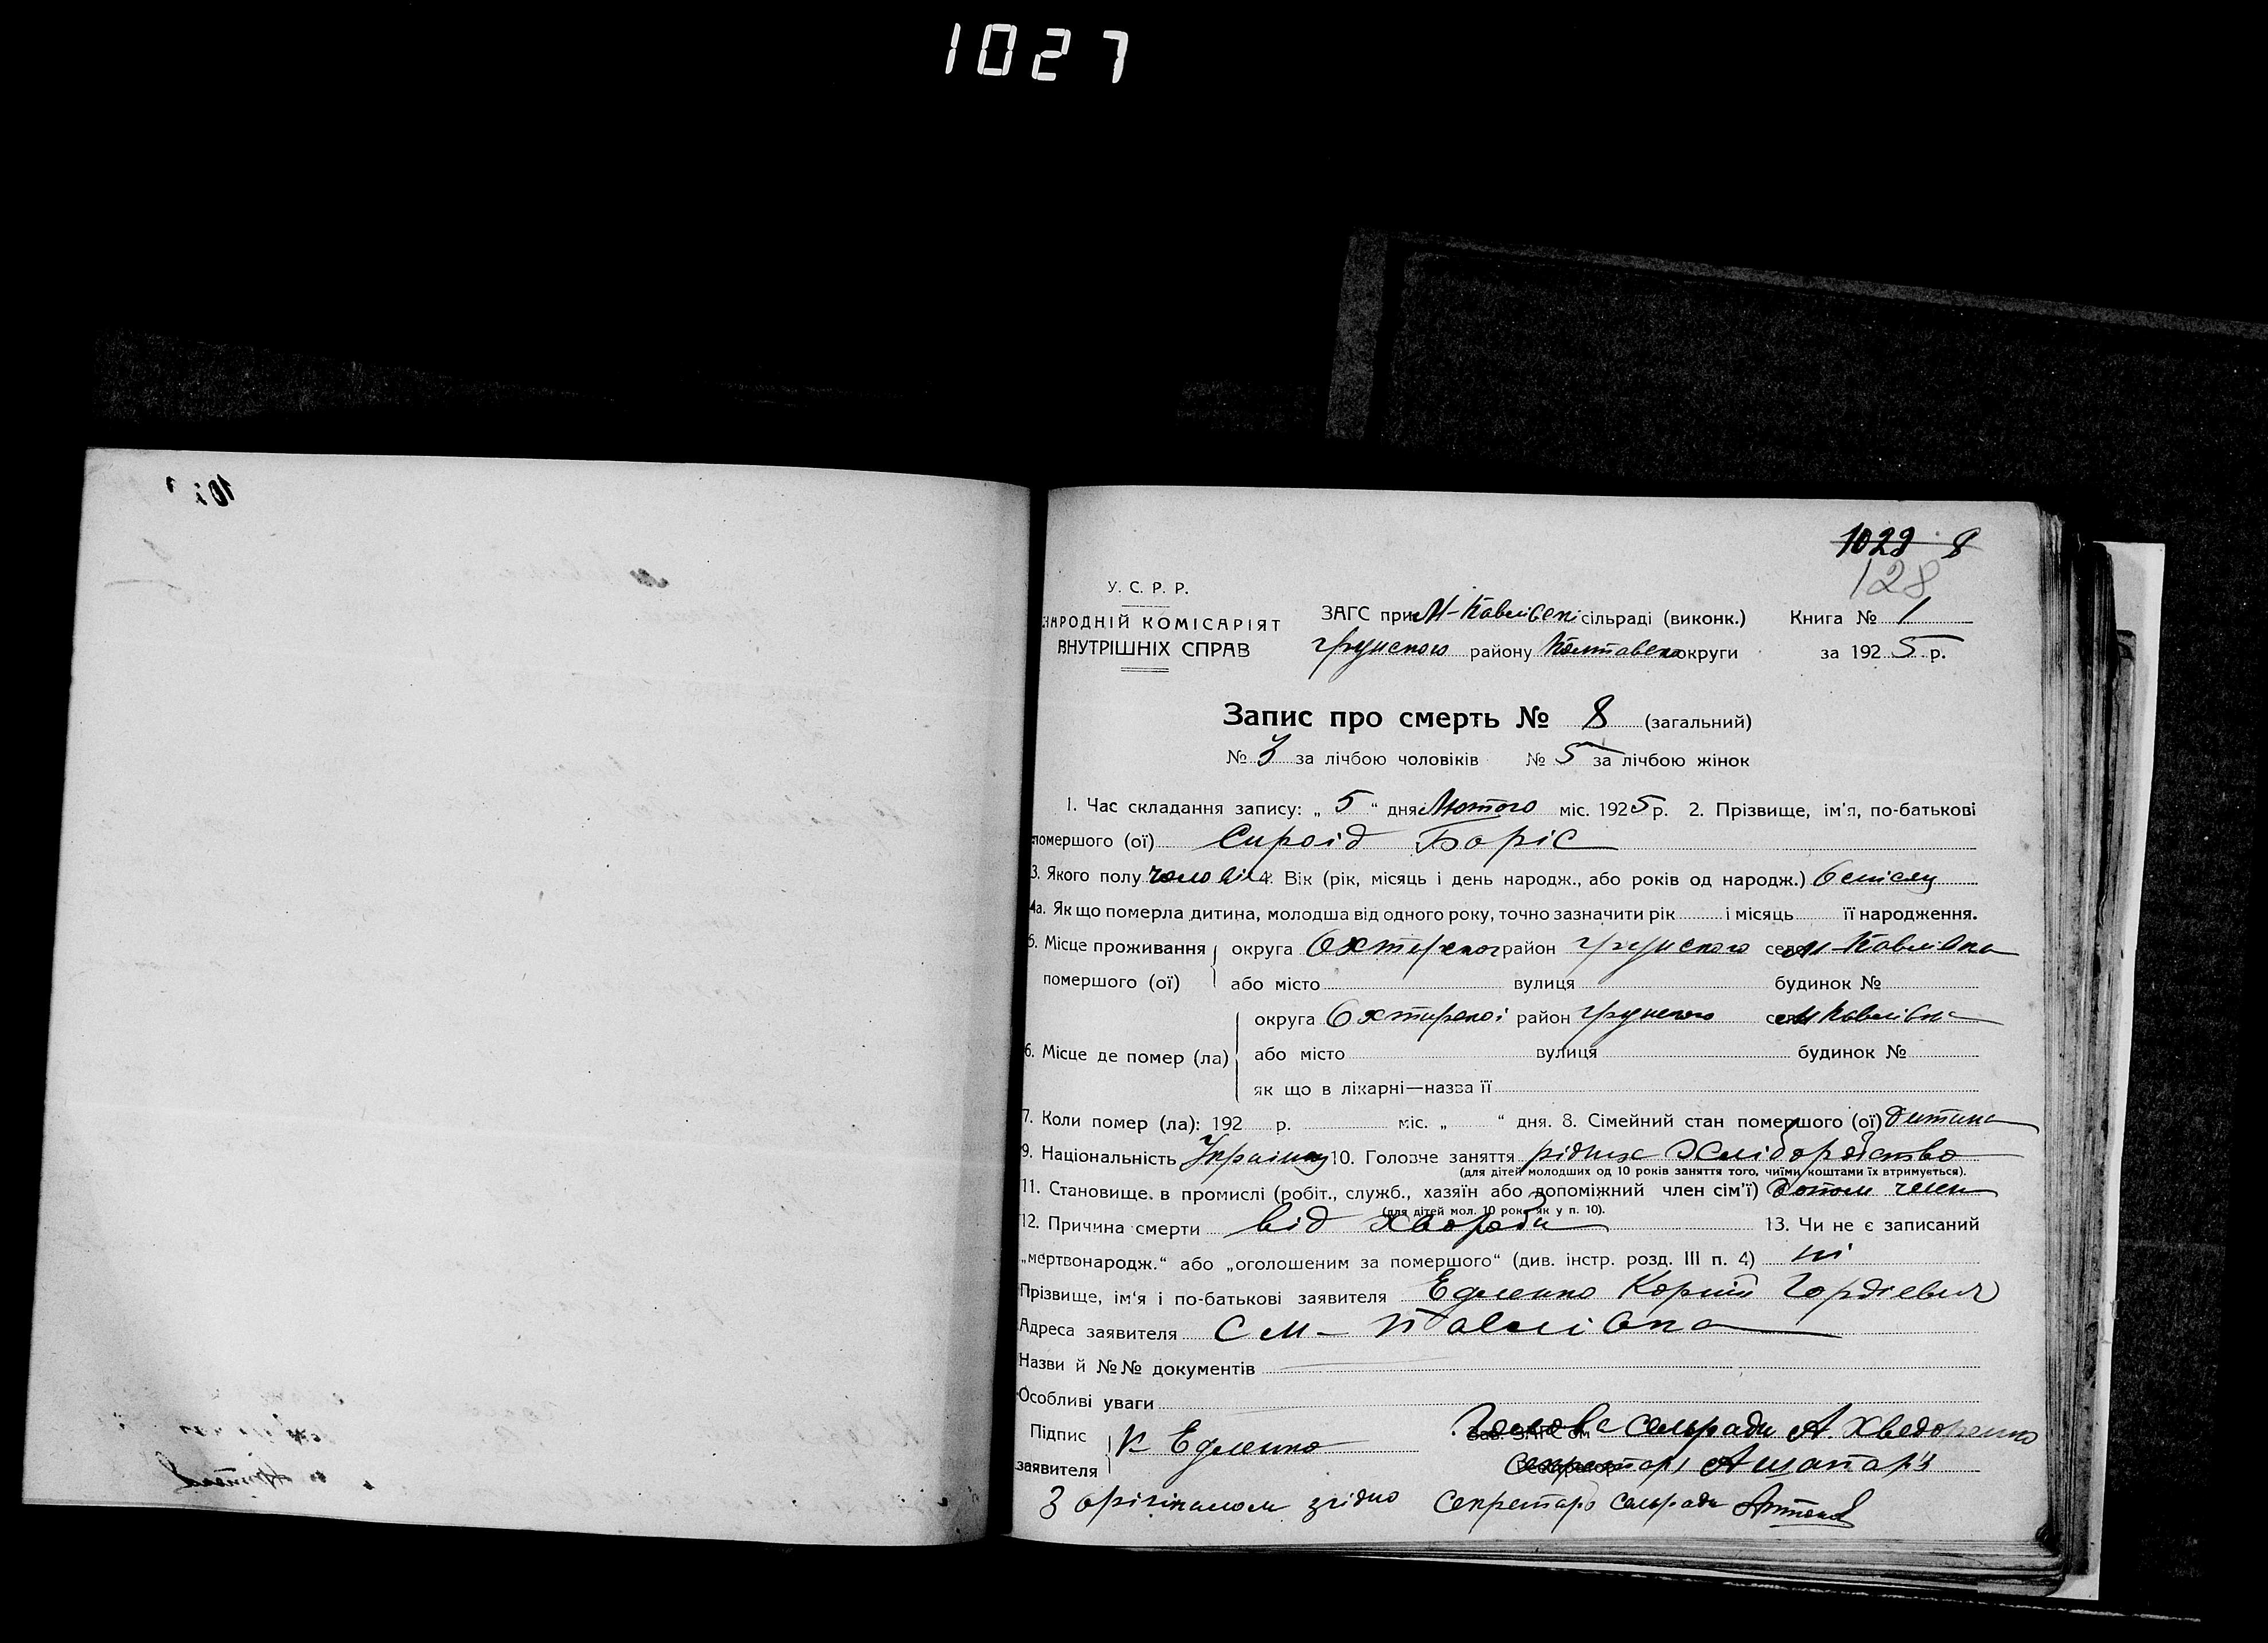 1027
1029 8
128
У. С. Р. Р.
НАРОДНІЙ КОМІСАРІЯТ
ВНУТРІШНІХ СПРАВ
ЗАГС при М-Павлівскі сільраді (виконк.) Книга № 1
Грунского району округи за 1925 р.
Запис про смерть № 8 (загальний)
№ 3 за лічбою чоловіків № 5 за лічбою жінок
1. Час складання запису: „ 5 “ дня Лютого міс. 1925 р. 2. Прізвище, ім'я, по-батькові
помершого (ої) Сироід Боріс
3. Якого полу чоловік 4. Вік (рік, місяць і день народж., або років од народж.) 6 місяц
4а. Як що померла дитина, молодша від одного року, точно зазначити рік і місяць її народження.
5. Місце проживання помершого (ої) округа район Грунского село М-Павлівка
або місто вулиця будинок №
6. Місце де помер (ла) округа Охтирскоі район Грунского село М Павлівка
або місто вулиця будинок №
як що в лікарні—назва її
7. Коли помер (ла): 192 р. міс. „ “ дня. 8. Сімейний стан помершого (ої) дитина
9. Національність 10. Головне заняття рідних Хліборобство
(для дітей молодших од 10 років заняття того, чиїми коштами їх втримується).
11. Становище в промислі (робіт., служб., хазяїн або допоміжний член сім'ї) допом член
(для дітей мол. 10 років як у п. 10).
12. Причина смерти від хвороби 13. Чи не є записаний
„мертвонародж.“ або „оголошеним за помершого“ (див. інстр. розд. III п. 4) ні
Прізвище, ім'я і по-батькові заявителя Гордієвич
Адреса заявителя С М- Павлівка
Назви й №№ документів
Особливі уваги
Підпис заявителя К Голова сельради А. Хведоренко
Зав. ЗАГС'ом
Секретарь
З орігіналом згідно Секретарь сельради